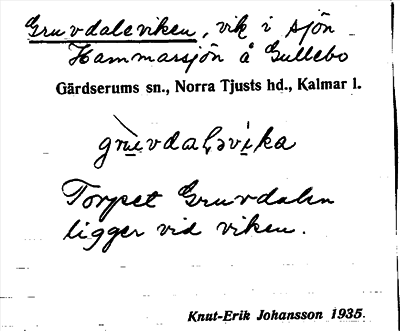 Gruvdaleviken, vik i sjön
Hammarsjön å Gullebo
Gärdserums sn., Norra Tjusts hd., Kalmar l.
gruvdaləvika
Torpet Gruvdalen
ligger vid viken.
Knut-Erik Johansson 1935.